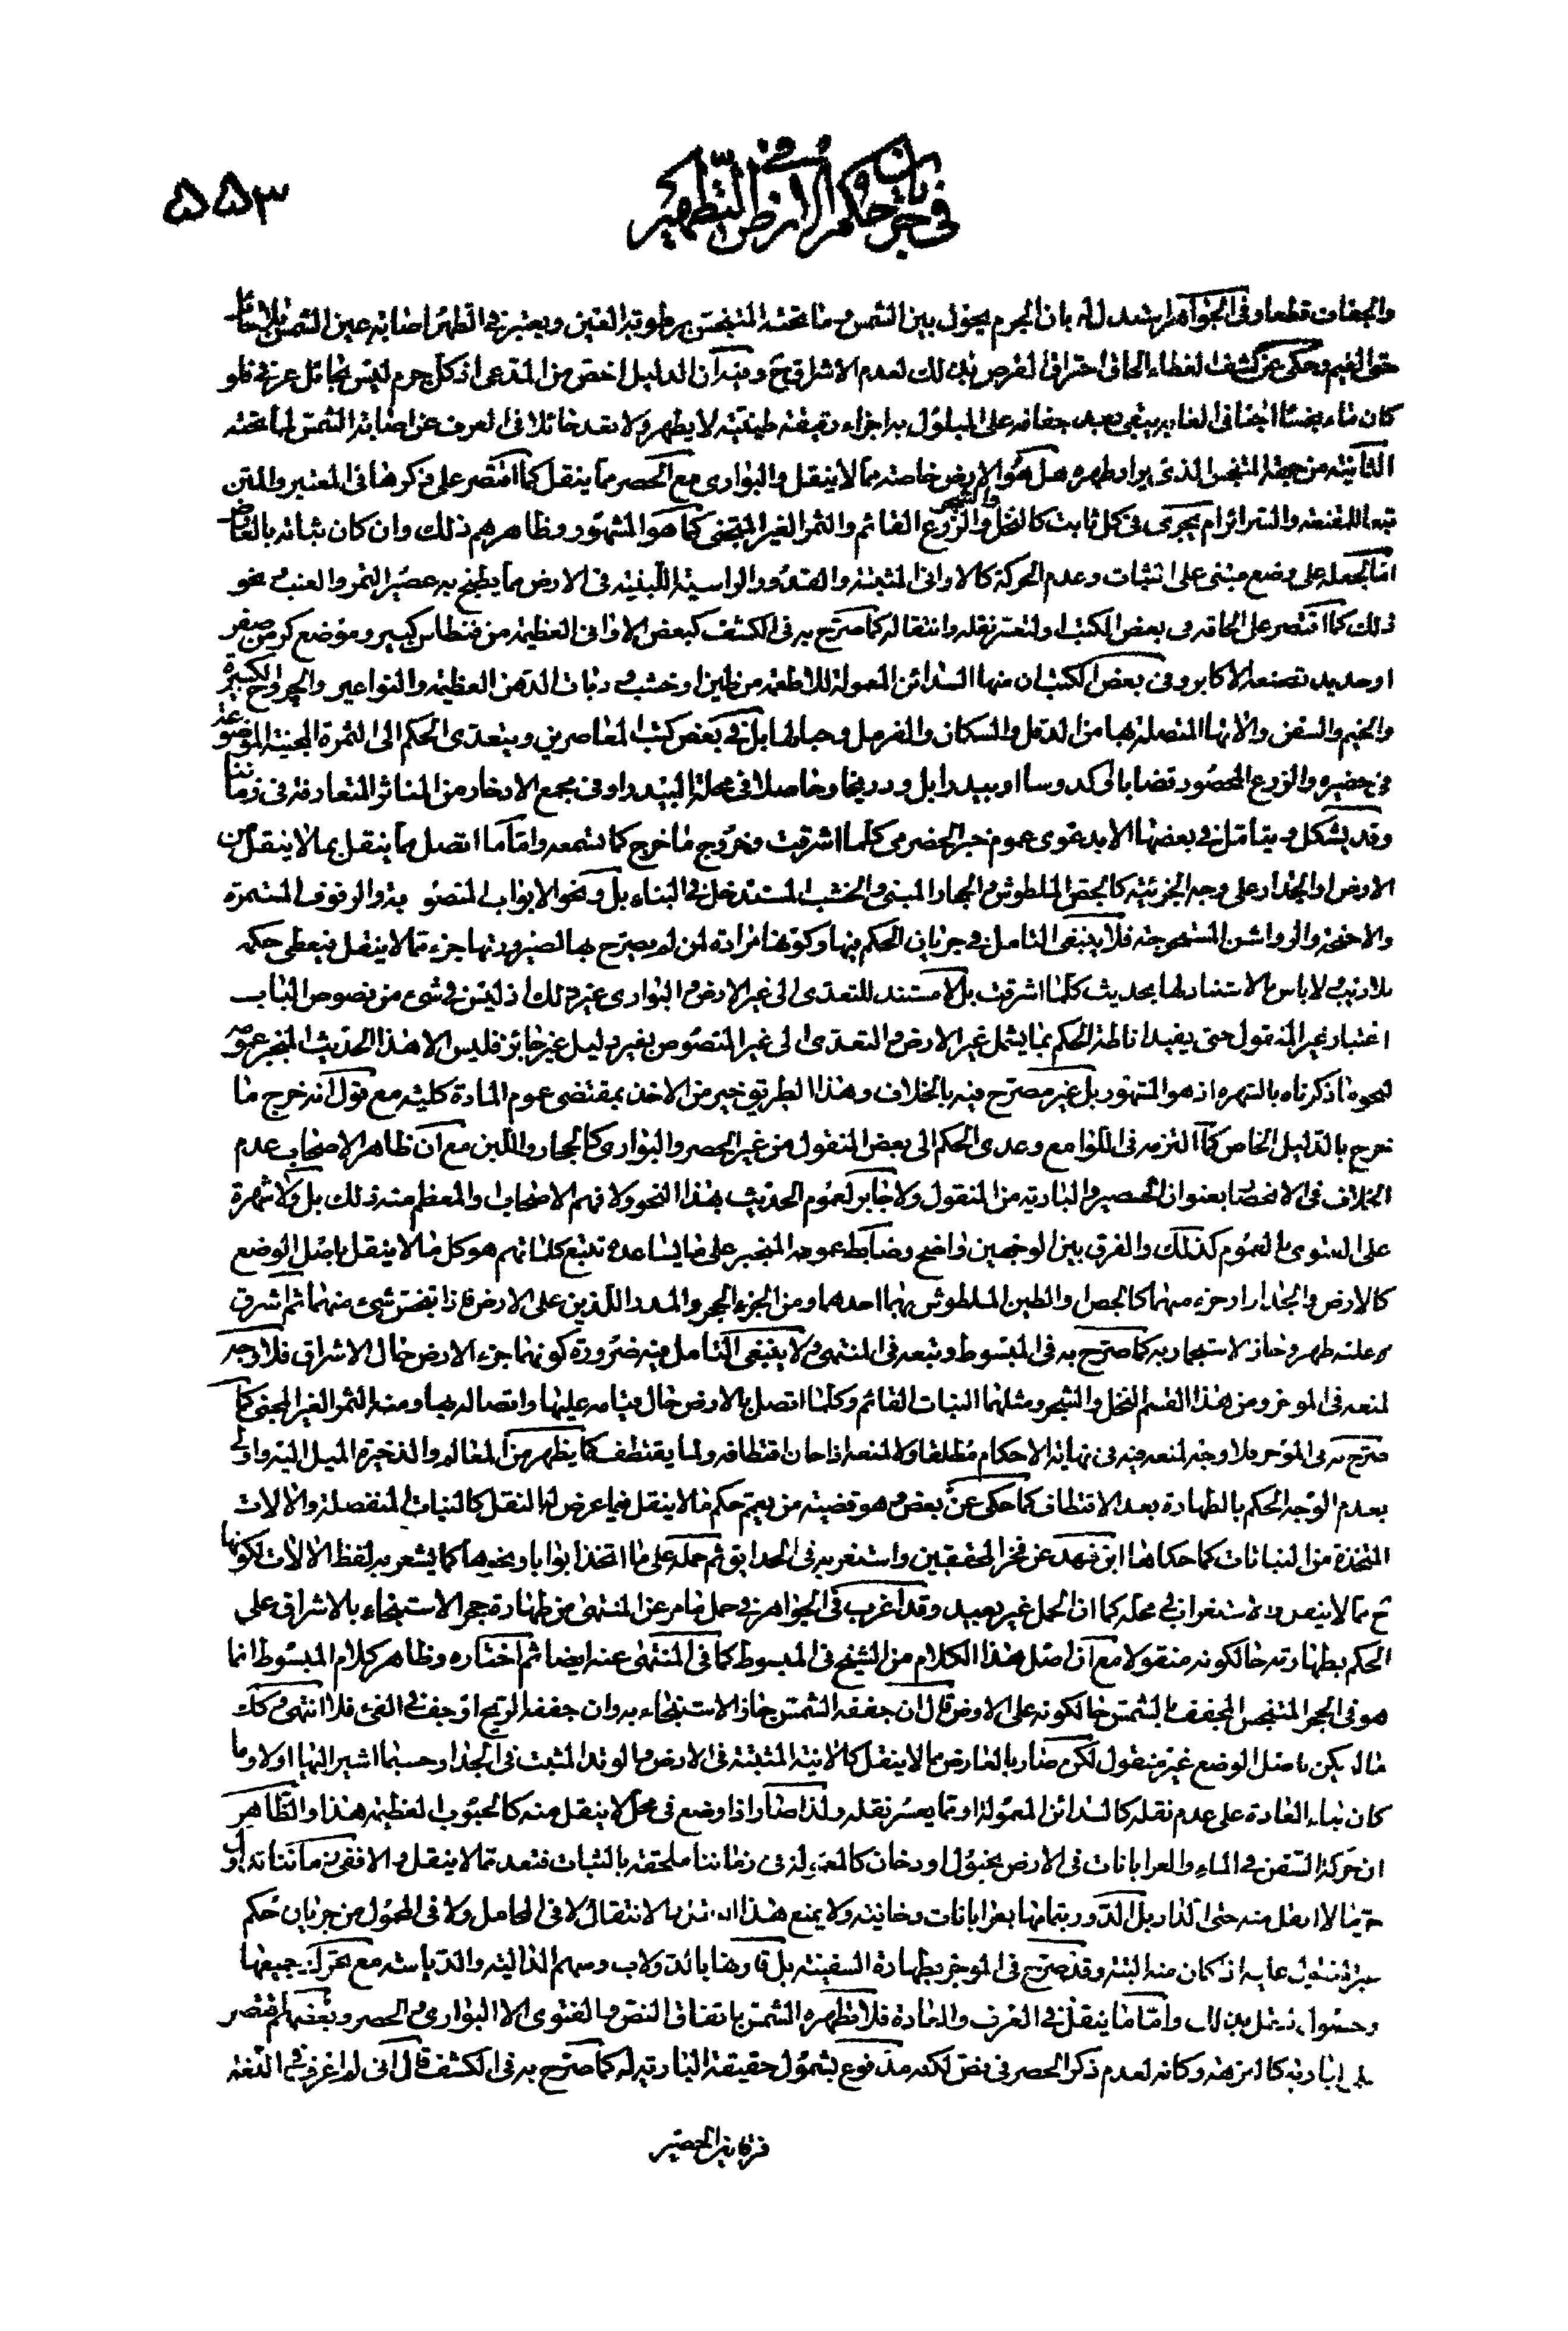 ٥٥٣
في جريان حكم الارض في التطهير
والجفاف قطعا وفى الجواهر استدل له بان الجرم يحول بين الشمس وما تحته المتنجس برطوبة العين ويعتبر في التطهر اصابة عين الشمس بلا حائل
حتى الغيم وحكى عن كشف الغطاء الحاق احتراق القرص بذلك لعدم الاشراق ح وفيه ان الدليل اخص من المدعى اذ كل جرم ليس بحائل عرفى فلو
كان ماء نجسا ايضا في الغاير يبقى بعد جفافه على المبلول به اجزاء دقيقة طينية لا يطهر ولا تعد حائلا في العرف عن اصابة الشمس لما تحته
الثانية من جهة المتنجس الذى يراد طهره هل هو الارض خاصة مما لا ينقل والبوارى مع الحصر مما ينقل كما اقتصر على ذكرها في المعتبر والمتن
المقنعة والسرائر ام يجرى في كل ثابت كالنخل والشجر والزرع القائم والثمر الغير المجتنى كما هو المشهور وظاهرهم ذلك وان كان ثباته بالعارض
اما لجعله على وضع مبنى على الثبات وعدم الحركة كالاوانى المثبتة والقدور الراسية المبنية في الارض مما يطبخ به عصير التمر والعنب نحو
ذلك كما اقتصر على الحاقه في بعض الكتب او لتعسر نقله وانتقاله كما صرح به في الكشف كبعض الاوانى العظيمة من قنطاس كبير وموضع كر من صفر
او حديد تصنعه الاكابر وفى بعض الكتب ان منها السدائن المعمولة للاطعمة من طين او خشب و دبات الدهن العظيمة والنواعير والجروخ الكبيرة
والخيم والسفن والاتها المتصلة بها من الدقل والسكان والفرمل وحبالها بل في بعض كتب المعاصرين ويتعدى الحكم الى الثمرة المجنية الموضوعة
في حضيره والزرع المحصود قضابا كدوسا او بيدرا بل ودريخا وحاصلا في محلة البيدر او في مجمع الادخار من المناثر المتعارفة في زماننا
وقد يشكل ويتامل في بعضها الا بدعوى عموم خبر الحضرمى كلما اشرقت وخروج ما خرج كما تسمعه واما ما اتصل مما ينقل بما لا ينقل من
الارض والجدار على وجه الجزئية كالجص الملطوش والجار المبنى والخشب المستدخل في البناء بل ونحو الابواب المنصوبة والرفوف المستمرة
والاخشبة والرواشن المستخرجة فلا ينبغي التامل في جريان الحكم فيها وكونها مرادة لمن لم يصرح بها لصيرورتها جزء مما لا ينقل فيعطى حكمه
بلا ريب لا باس بالاستناد لها بحديث كلما اشرقت بل لا مستند للتعدى الى غير الارض والبوارى غير ذلك اذ ليس في شىء من نصوص الباب
اعتبار غير المنقول حتى يفيد اناطة الحكم بما يشمل غير الارض والتعدى الى غير المنصوص بغير دليل غير جائز فليس الا هذا الحديث المنجبر عمومه
لنحو ما ذكرناه بالشهرة اذ هو المشهور بل غير مصرح فيه بالخلاف وهذا الطريق خير من الاخذ بمقتضى عموم المادة كلية مع قول انه خرج ما
خرج بالدليل الخاص كما التزمه في اللوامع وعدى الحكم الى بعض المنقول من غير الحصر والبوارى كالحجار واللبن مع ان ظاهر الاصحاب عدم
الخلاف في الاختصاص بعنوان الحصير والبادية من المنقول ولا جابر لعموم الحديث بهذا النحو ولا فهم الاصحاب والمعظم منه ذلك بل ولا شهرة
على الفتوى بالعموم كذلك والفرق بين الوجهين واضح وضابط عمومه المنجبر على ما يساعده تتبع كلماتهم هو كل ما لا ينقل باصل الوضع
كالارض والجدار او جزء منهما كالجص والطين الملطوش بهما احدهما ومن الجزء الحجر والمدر اللذين على الارض فاذا تنجس شىء منهما ثم اشرق
عليه طهر وجاز الاستجمار به كما صرح به في المبسوط وتبعه في المنتهى ولا ينبغي التامل فيه ضرورة كونهما جزء الارض حال الاشراق فلا وجه
لمنعه في الموجز ومن هذا القسم النخل والشجر ومثلهما النبات القائم وكلما اتصل بالارض حال قيامه عليها واتصاله بها ومنه الثمر الغير المجنى كما
صرح به في الموجز فلا وجه لمنعه فيه في نهاية الاحكام مطلقا ولا لمنعه اذا حان اقتطافه ولما يقتطف كما يظهر من المعالم والذخيرة الميل اليه واولى
بعدم الوجه الحكم بالطهارة بعد الاقتطاف كما حكى عن بعض و هو قضية من يعم حكم ما لا ينقل فيما عرض له النقل كالنباتات المنفصلة والالات
المتخذة من النباتات كما حكاها ابن فهد عن فخر المحققين واستغربه في الحدائق ثم حمله على ما اتخذ ابوابا ونحوها كما يشعر به لفظ الالات لكونها
ح مما لا ينقل والاستغراب في محله كما ان الحمل غير بعيد وقد اغرب في الجواهر في حمل ما مر عن المنتهى من طهارة حجر الاستنجاء بالاشراق على
الحكم بطهارته حال كونه منقولا مع ان اصل هذا الكلام من الشيخ في المبسوط كما في المنتهى عنه ايضا ثم اختاره وظاهر كلام المبسوط انما
هو في الحجر المتنجس المجفف بالشمس حال كونه على الارض قال ان جففه الشمس جاز الاستنجاء به وان جففه الريح او جف في الفىء فلا انتهى وكذا
ما لم يكن باصل الوضع غير منقول لكن صار بالعارض مما لا ينقل كالانية المثبتة في الارض والوتد المثبت في الجدار حسبما اشير اليها اولا وما
كان بناء العادة على عدم نقله كالسدائن المعمولة او مما يعسر نقله ولذا صار اذا وضع في محل لا ينقل منه كالحبوب العظيمة هذا والظاهر
ان حركة السفن في الماء والعرابانات في الارض بخيول او دخان كالمعمولة في زماننا ملحقة بالثبات فتعد مما لا ينقل
حتى الدار بل الدور وربما منها بعرابانات دخانية ولا يمنع هذا الانتقال لا في الحامل ولا في المحمول من جريان حكم
وقد صرح في الموجز بطهارة السفينة بل وهنا بالدولاب وسهم الدالية والدياسة مع تحرك جميعها
واما ما ينقل في العرف والعادة فلا تطهره الشمس باتفاق النص والفتوى الا البوارى والحصر وبعضهم اقتصر
البادية كالنزهة وكانه لعدم ذكر الحصر في نص لكنه مدفوع بشمول حقيقة البادية له كما صرح به في الكشف قال انى لم اعرف في اللغة
فرقا بين الحصير